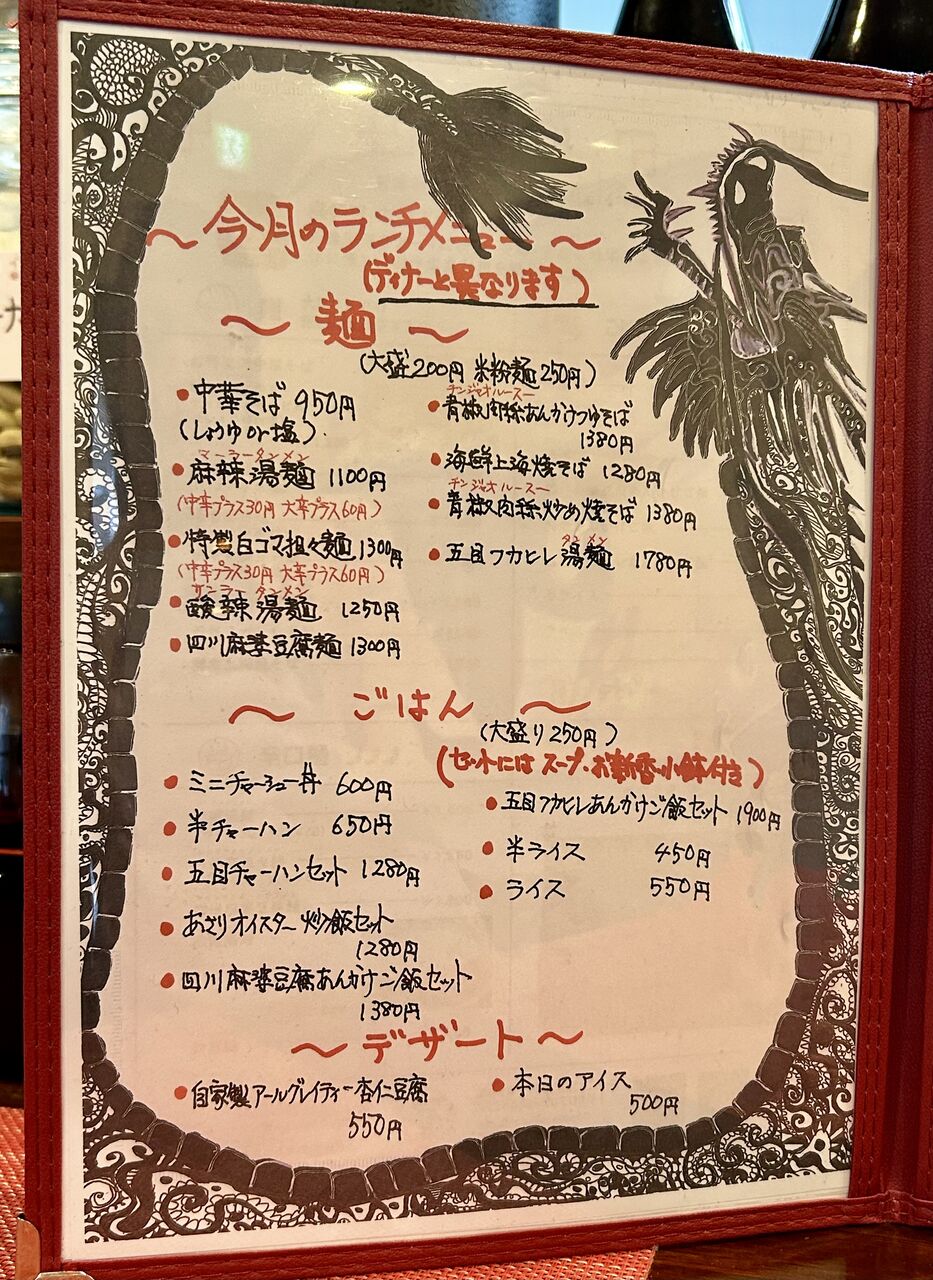 ～今月のランチメニュー～
(ディナーと異なります)
～麺～
(大盛200円 米粉麺250円)
●中華そば 950円
(しょうゆor塩)
マーラータンメン
●麻辣湯麺 1100円
(中辛プラス30円 大辛プラス60円)
●特製白ゴマ担々麺 1300円
(中辛プラス30円 大辛プラス60円)
サンラータンメン
●酸辣湯麺 1250円
●四川麻婆豆腐麺 1300円
チンジャオルースー
●青椒肉絲あんかけつゆそば
1380円
●海鮮上海焼そば 1280円
チンジャオルースー
●青椒肉絲炒め焼そば 1380円
タンメン
●五目フカヒレ湯麺 1780円
～ごはん～
(大盛り250円)
(セットには スープ・お新香・小鉢付き)
●ミニチャーシュー丼 600円
●半チャーハン 650円
●五目チャーハンセット 1280円
●あさりオイスター炒飯セット
1280円
●四川麻婆豆腐あんかけご飯セット
1380円
●五目フカヒレあんかけご飯セット 1900円
●半ライス 450円
●ライス 550円
～デザート～
●自家製アールグレイティー杏仁豆腐
550円
●本日のアイス
500円